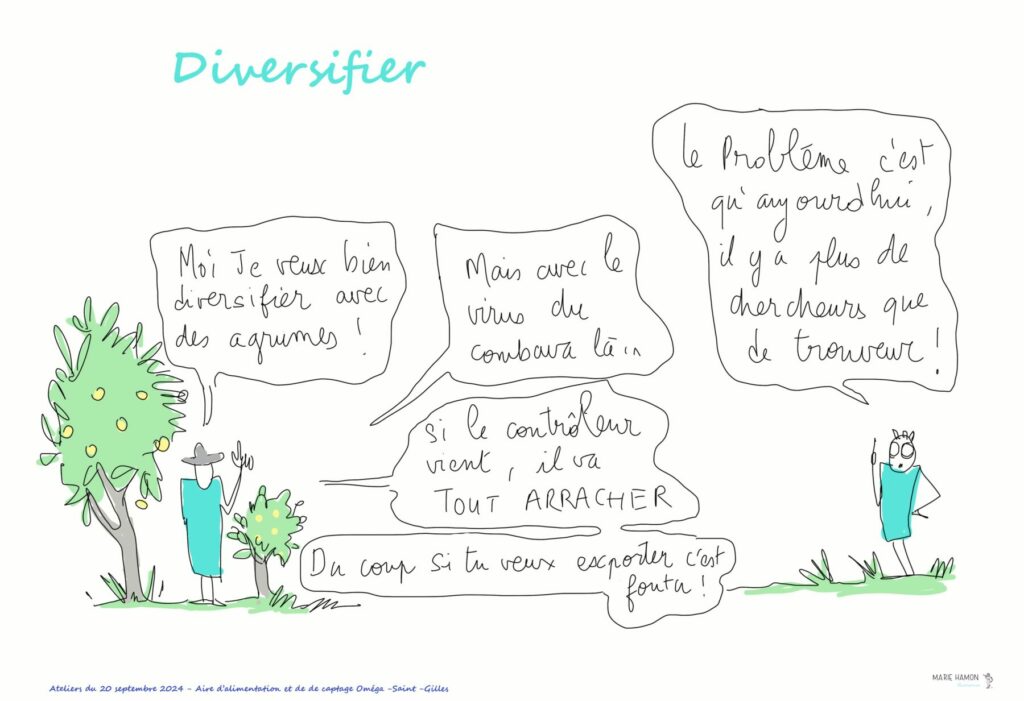 Diversifier
Moi Je veux bien
diversifier avec
des agrumes !
Mais avec le
virus du
combava là...
Si le contrôleur
vient, il va
TOUT ARRACHER
Du coup si tu veux exporter c'est
foutu !
Le Problème c'est
qu'aujourd'hui,
il y a plus de
chercheurs que
de trouveur !
Ateliers du 20 septembre 2024 - Aire d'alimentation et de de captage Oméga -Saint -Gilles
MARIE HAMON